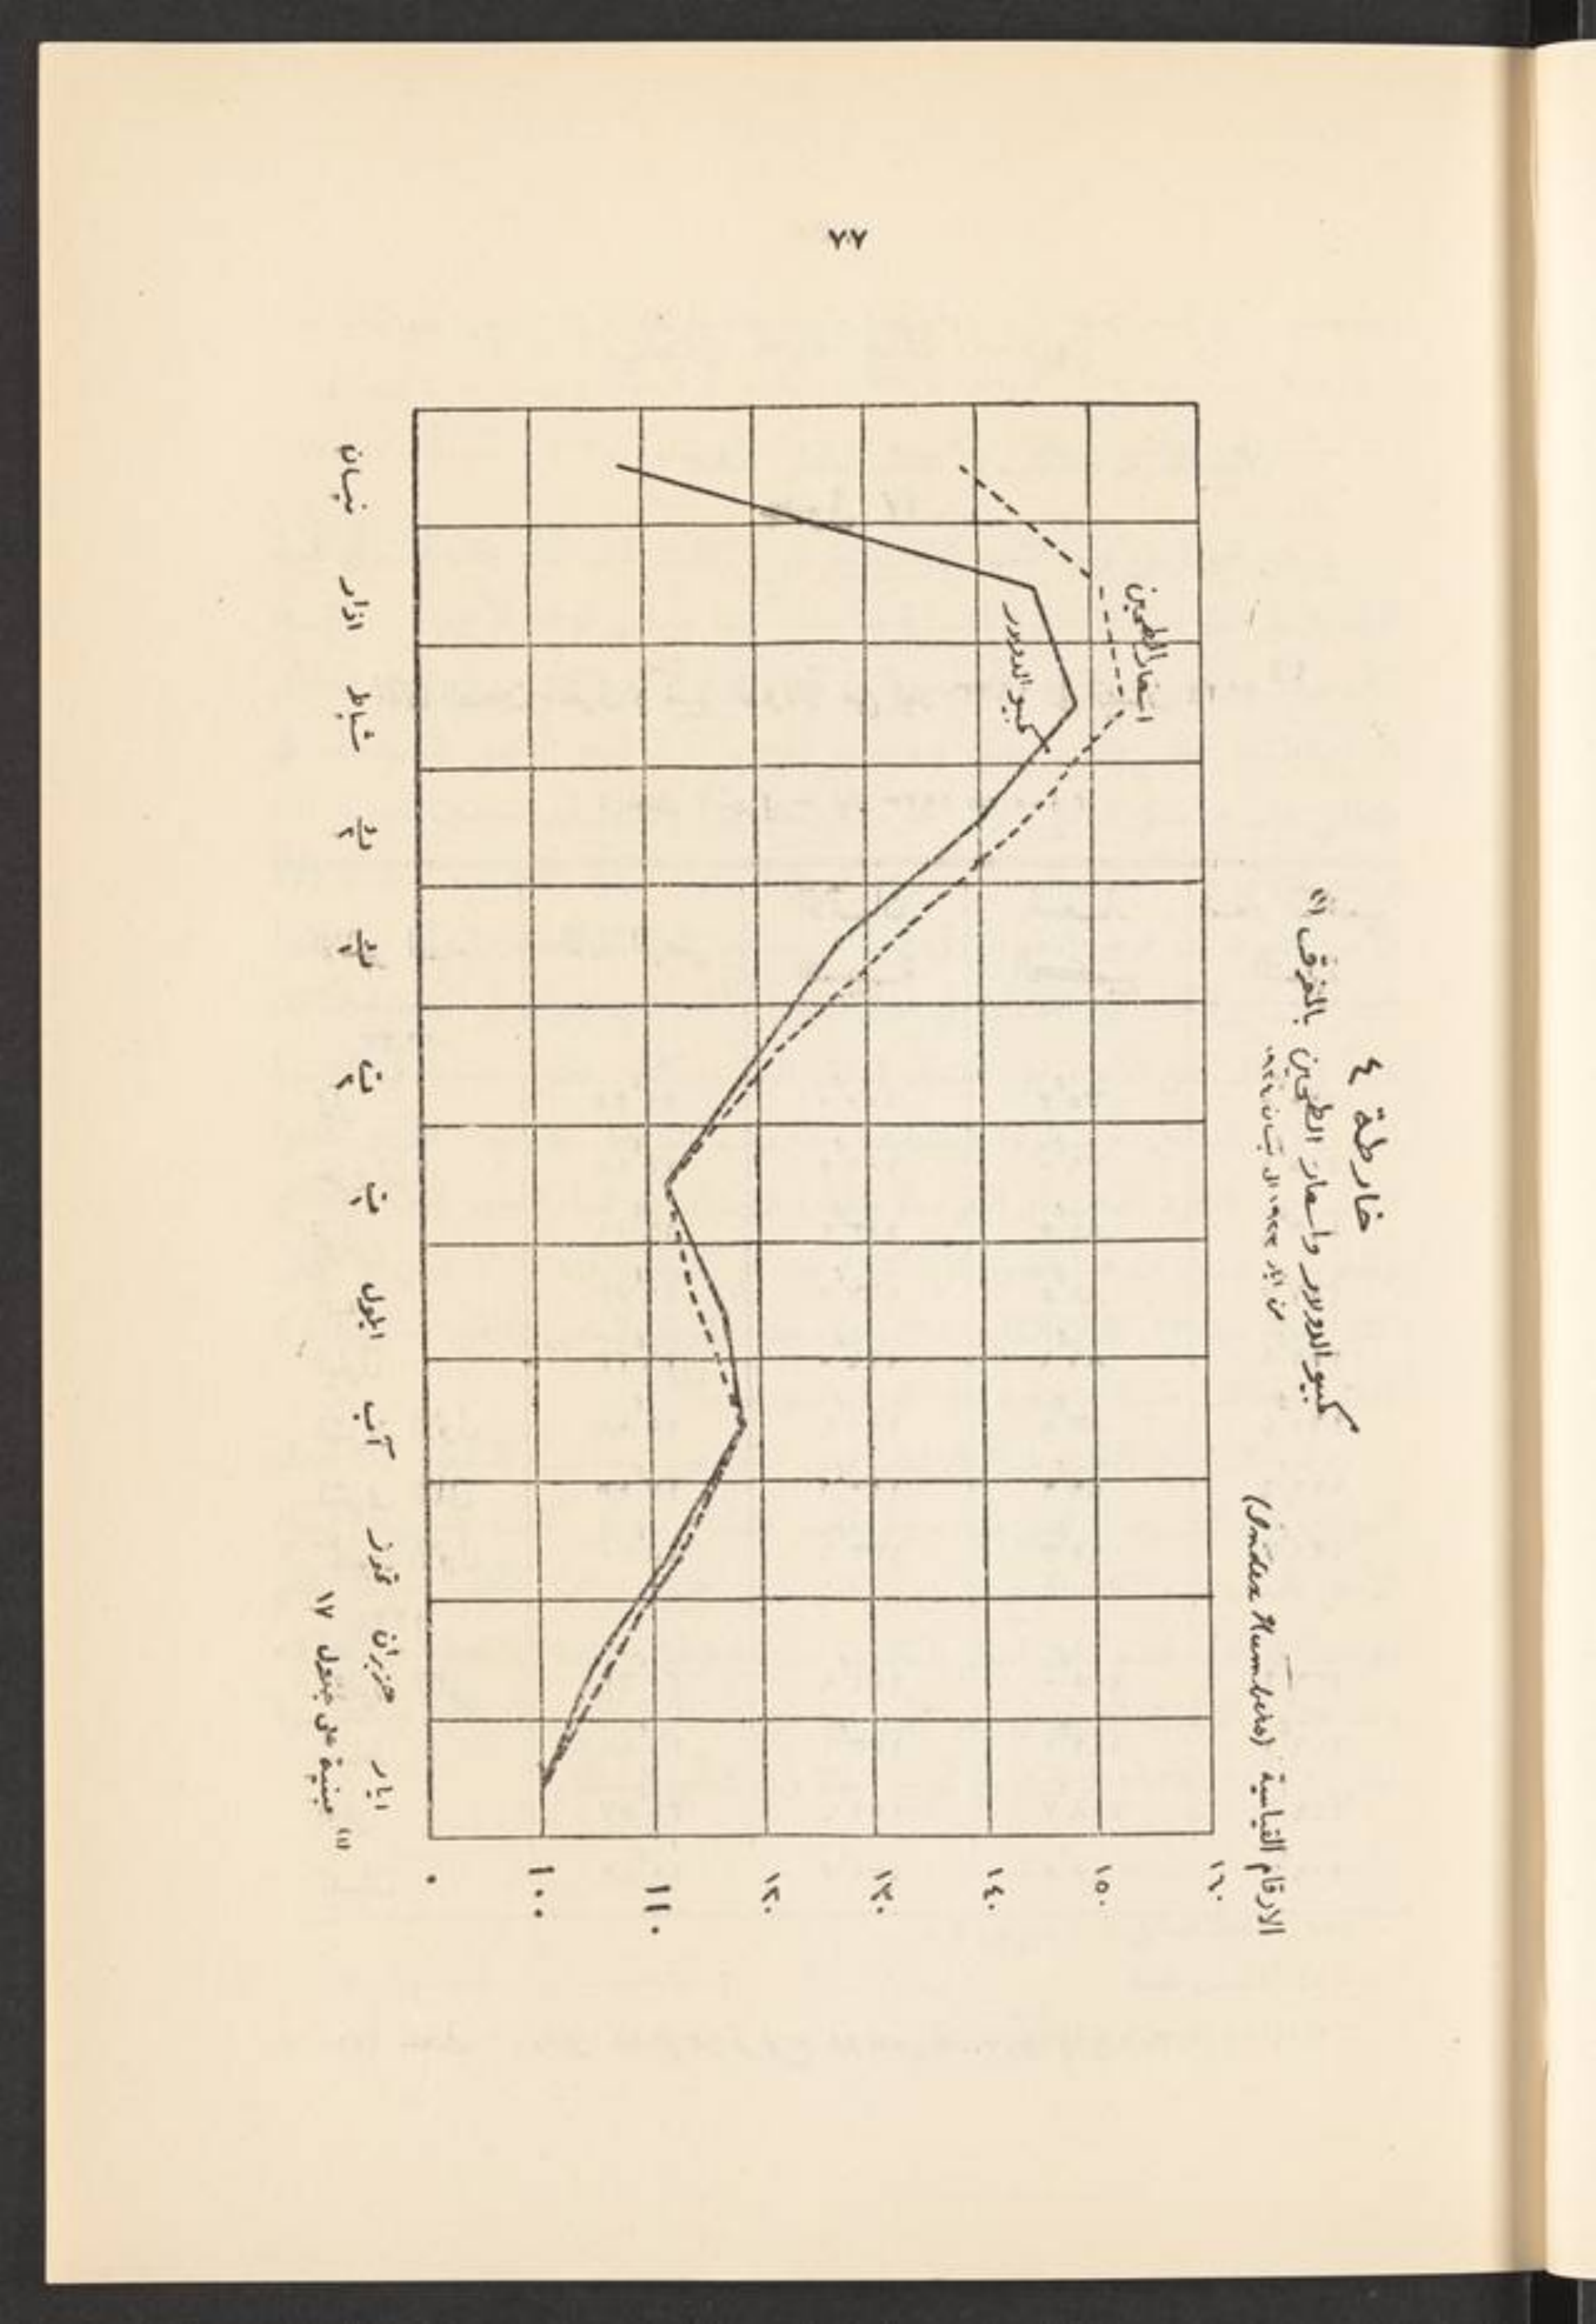 ٧٧
خارطة ٤
كمبيو الدولار واسعار الطحين بالفرق (١)
من ايار ١٩٢٣ الى نيسان ١٩٢٤
الارقام القياسية (Index Numbers)
١٦٠
١٥٠
١٤٠
١٣٠
١٢٠
١١٠
١٠٠
٠
اسعار الطحين
كمبيو الدولار
ايار
حزيران
تموز
آب
ايلول
ت١
ت٢
ك١
ك٢
شباط
اذار
نيسان
(١) مبنية على جدول ١٧